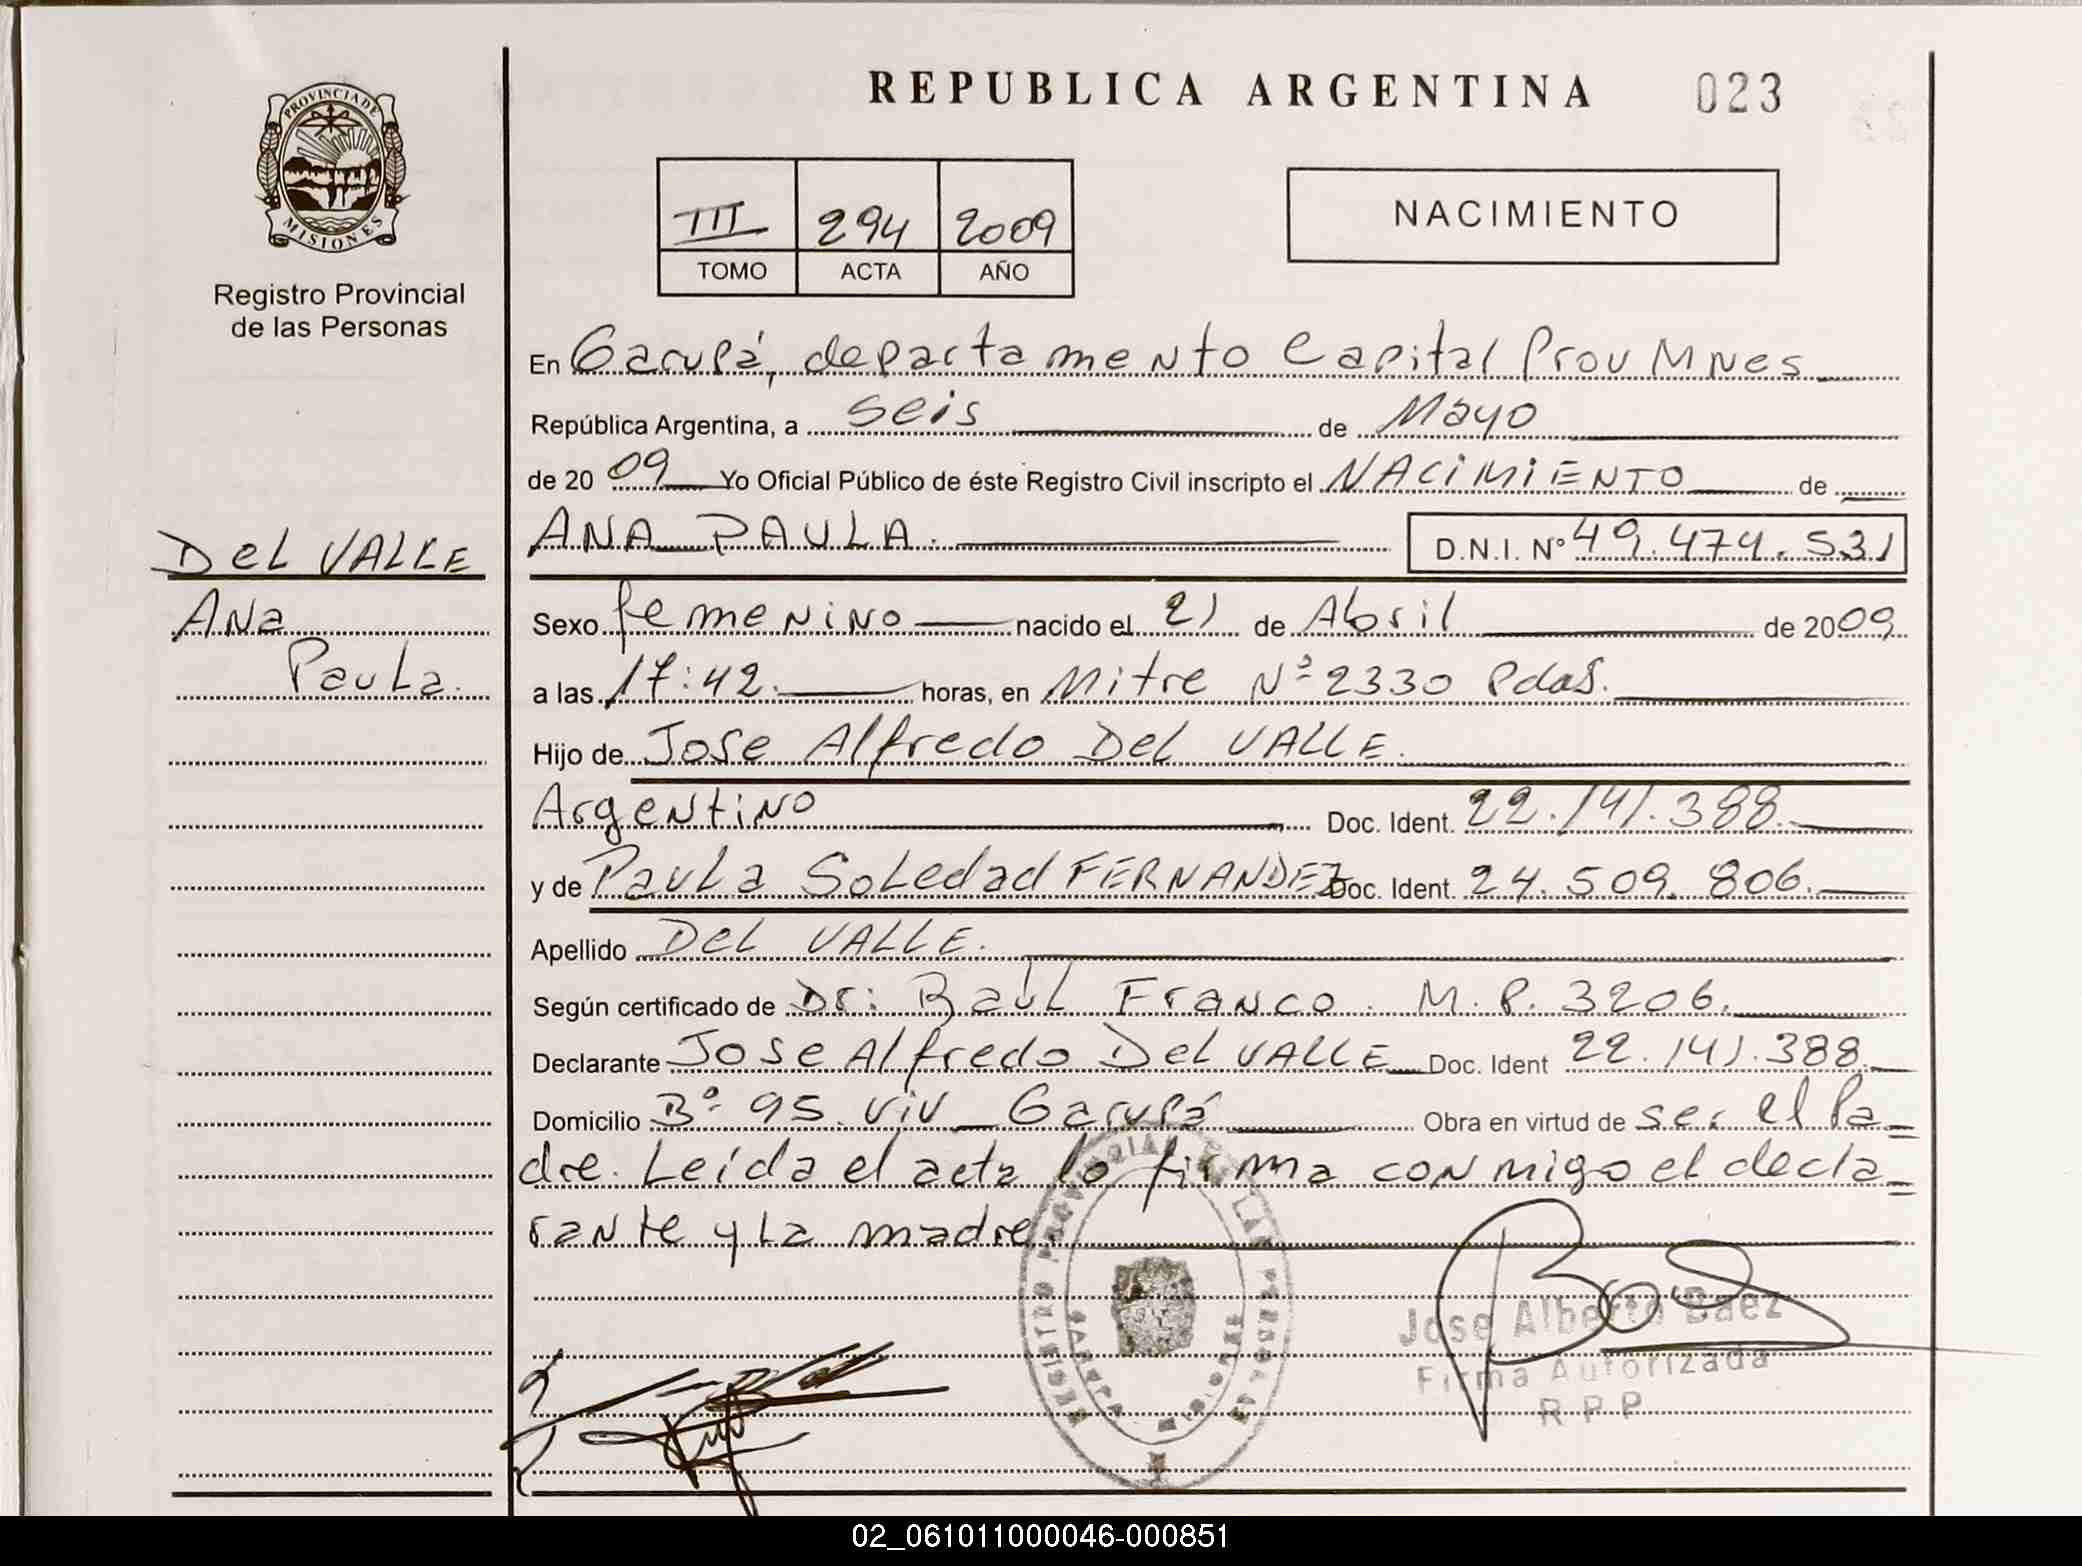 REPUBLICA ARGENTINA
023
PROVINCIA DE
MISIONES
Registro Provincial
de las Personas
III 294 2009
TOMO ACTA AÑO
NACIMIENTO
En Garupá, departamento Capital Prov MNes
República Argentina, a seis de Mayo
de 2009 Yo Oficial Público de éste Registro Civil inscripto el NACIMIENTO de
DEL VALLE
Ana
Paula.
ANA PAULA. D.N.I. Nº 49.474.531
Sexo femenino nacido el 21 de Abril de 2009
a las 17:42. horas, en Mitre Nº 2330 Pdas.
Hijo de Jose Alfredo Del VALLE.
Argentino Doc. Ident. 22.141.388.
y de Paula Soledad FERNANDEZ Doc. Ident. 24.509.806.
Apellido Del VALLE.
Según certificado de Dr: Raúl Franco. M.P. 3206.
Declarante Jose Alfredo Del VALLE Doc. Ident 22.141.388.
Domicilio Bº 95 viv Garupá Obra en virtud de ser el Pa=
dre. Leída el acta lo firma conmigo el decla=
rante y la madre.
REGISTRO PROVINCIAL DE LAS PERSONAS
GARUPA MISIONES
Jose Alberto Baez
Firma Autorizada
R P P
02_061011000046-000851